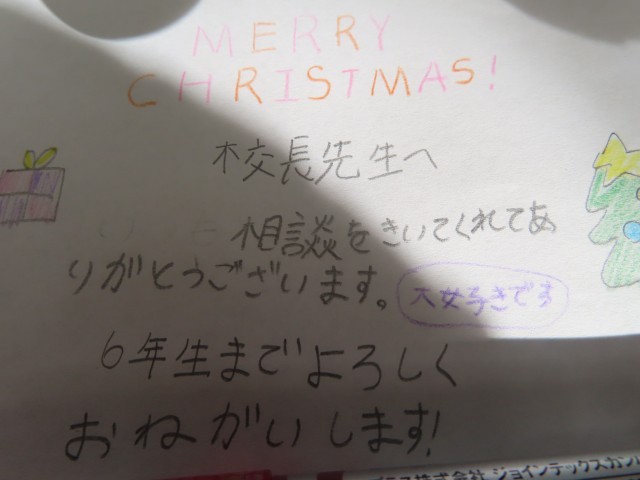 MERRY
CHRISTMAS!
校長先生へ
相談をきいてくれてあ
りがとうございます。
大好きです
6年生までよろしく
おねがいします!
株式会社 ジョインテックスカンパ